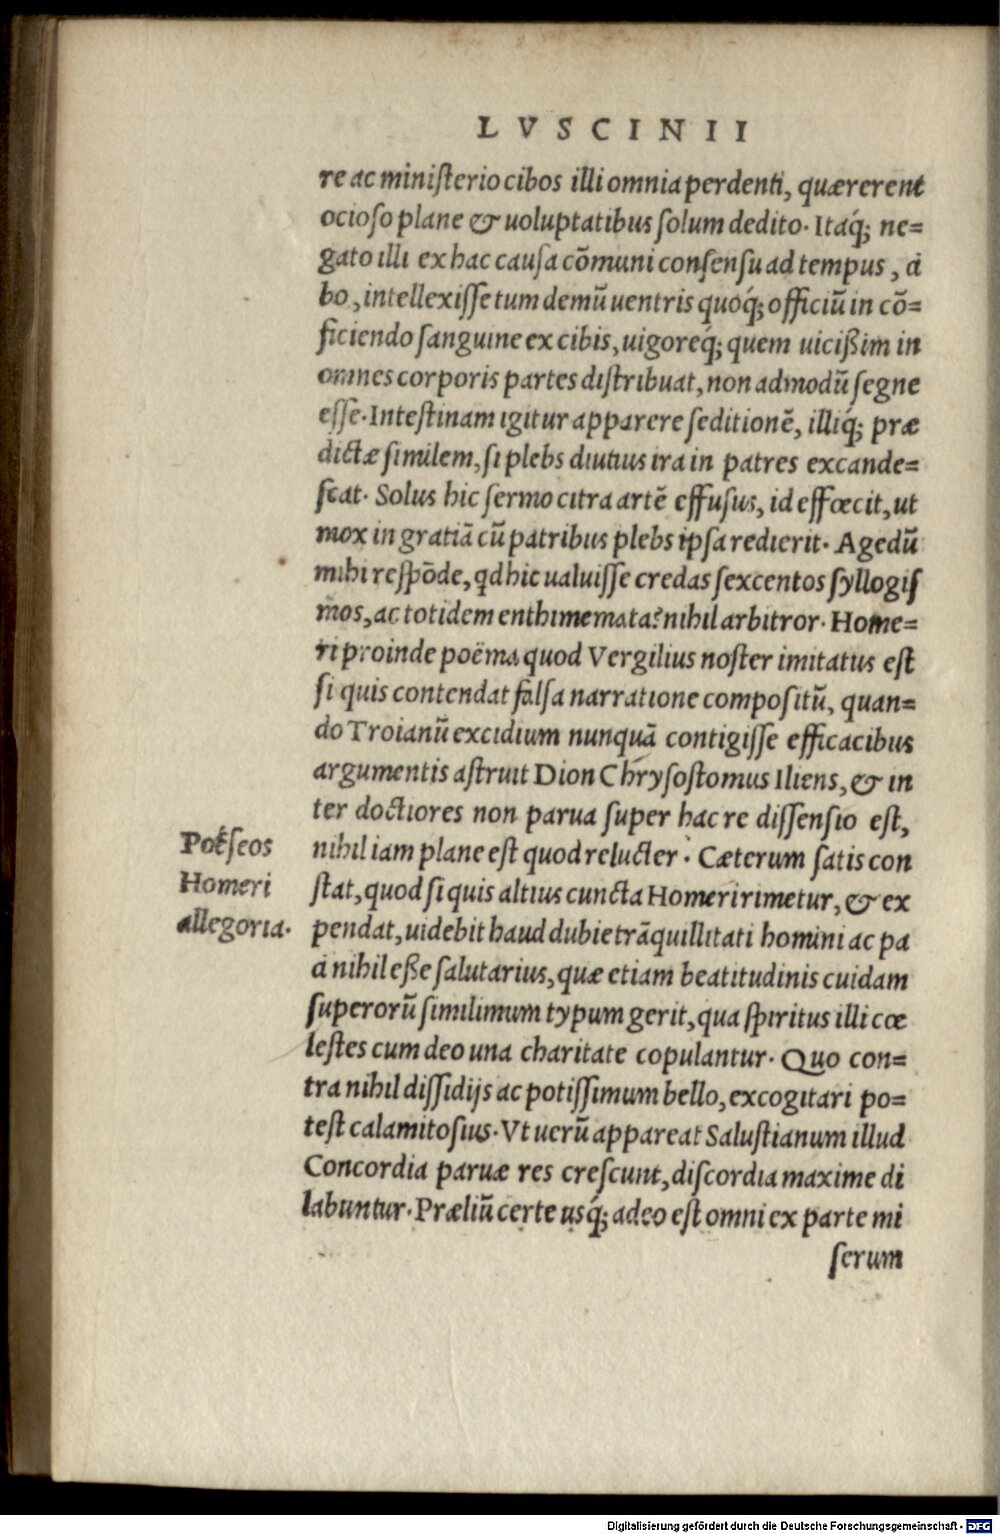 LVSCINII
re ac ministerio cibos illi omnia perdenti, quærerent
ocioso plane & uoluptatibus solum dedito. Itaq́; ne=
gato illi ex hac causa cõmuni consensu ad tempus, ci
bo, intellexisse tum demũ uentris quoq́; officiũ in cõ=
ficiendo sanguine ex cibis, uigoreq́; quem uicißim in
omnes corporis partes distribuat, non admodũ segne
esse. Intestinam igitur apparere seditionẽ, illiq́; præ
dictæ similem, si plebs diutius ira in patres excande=
scat. Solus hic sermo citra artẽ effusus, id effœcit, ut
mox in gratiã cũ patribus plebs ipsa redierit. Agedũ
mihi respõde, qd hic ualuisse credas sexcentos syllogis
mos, ac totidem enthimemata? nihil arbitror. Home=
ri proinde poëma quod Vergilius noster imitatus est
si quis contendat falsa narratione compositũ, quan=
do Troianũ excidium nunquã contigisse efficacibus
argumentis astruit Dion Chrysostomus Iliens, & in
ter doctiores non parua super hac re dissensio est,
nihil iam plane est quod relucter. Cæterum satis con
stat, quod si quis altius cuncta Homeri rimetur, & ex
pendat, uidebit haud dubie trãquillitati homini ac pa
ci nihil eße salutarius, quæ etiam beatitudinis cuidam
superorũ similimum typum gerit, qua spiritus illi cœ
lestes cum deo una charitate copulantur. Quo con=
tra nihil dissidijs ac potissimum bello, excogitari po=
test calamitosius. Vt uerũ appareat Salustianum illud
Concordia paruæ res crescunt, discordia maxime di
labuntur. Præliũ certe usq́; adeo est omni ex parte mi
serum
Poëseos
Homeri
allegoria.
Digitalisierung gefördert durch die Deutsche Forschungsgemeinschaft - DFG